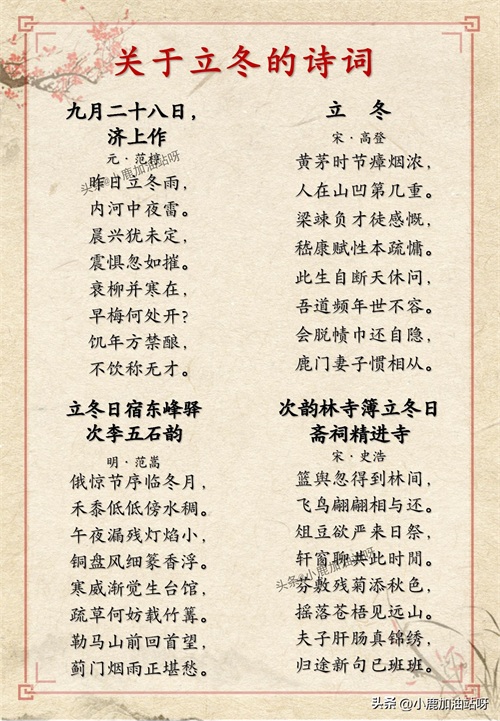 关于立冬的诗词
九月二十八日，
济上作
元·范梈
昨日立冬雨，
内河中夜雷。
晨兴犹未定，
震惧忽如摧。
衰柳并寒在，
早梅何处开？
饥年方禁酿，
不饮称无才。
立　冬
宋·高登
黄茅时节瘴烟浓，
人在山凹第几重。
梁竦负才徒感慨，
嵇康赋性本疏慵。
此生自断天休问，
吾道频年世不容。
会脱帻巾还自隐，
鹿门妻子惯相从。
立冬日宿东峰驿
次李五石韵
明·范嵩
俄惊节序临冬月，
禾黍低低傍水稠。
午夜漏残灯焰小，
铜盘风细篆香浮。
寒威渐觉生台馆，
疏草何妨载竹篝。
勒马山前回首望，
蓟门烟雨正堪愁。
次韵林寺簿立冬日
斋祠精进寺
宋·史浩
篮舆忽得到林间，
飞鸟翩翩相与还。
俎豆欲严来日祭，
轩窗聊共此时閒。
芬敷残菊添秋色，
摇落苍梧见远山。
夫子肝肠真锦绣，
归途新句已班班。
头条@小鹿加油站呀
头条@小鹿加油站呀
头条@小鹿加油站呀